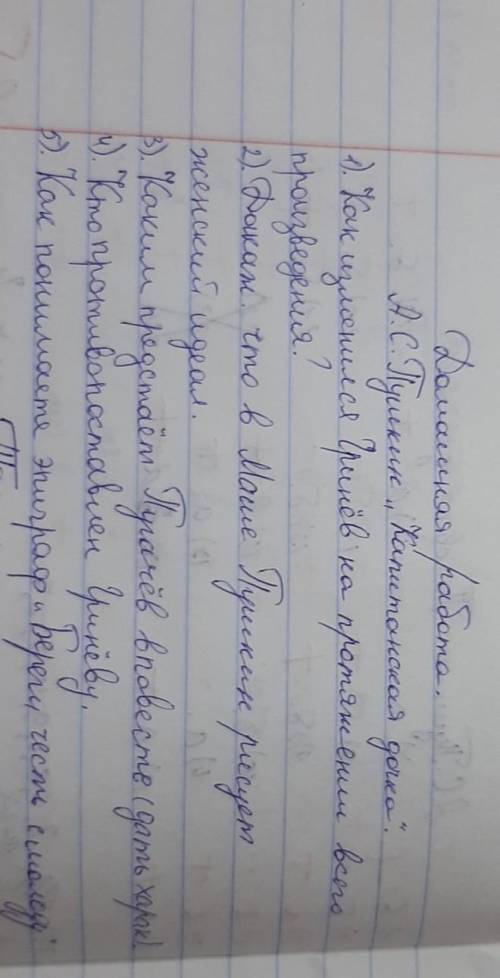 Домашная работа.
А.С. Пушкин „Капитанская дочка".
1). Как изменился Гринёв на протяжении всего
произведения?
2). Докаж. что в Маше Пушкин рисует
женский идеал.
3). Каким предстаёт Пугачёв в повести (дать харак
4). Кто противопоставлен Гринёву,
5). Как понимаете эпиграф „Береги честь смолоду"